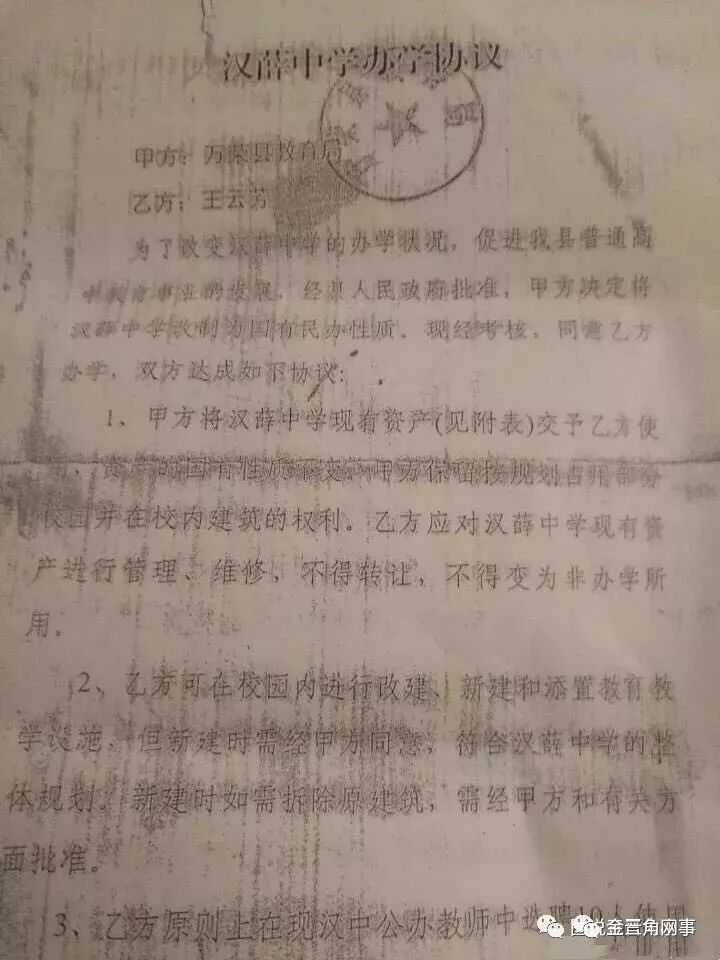 汉薛中学办学协议
甲方：万荣县教育局
乙方：王云芳
为了改变汉薛中学的办学状况，促进我县普通高
中教育事业的发展，经县人民政府批准，甲方决定将
汉薛中学改制为国有民办性质．现经考核，同意乙方
办学，双方达成如下协议：
1、甲方将汉薛中学现有资产(见附表)交予乙方使
资产的国有性质不变。甲方保留按规划占用部分
校园并在校内建筑的权利。乙方应对汉薛中学现有资
产进行管理、维修，不得转让，不得变为非办学所
用。
2、乙方可在校园内进行改建、新建和添置教育教
学设施，但新建时需经甲方同意，符合汉薛中学的整
体规划。新建时如需拆除原建筑，需经甲方和有关方
面批准。
3、乙方原则上在现汉中公办教师中选聘10人
说金晋角网事